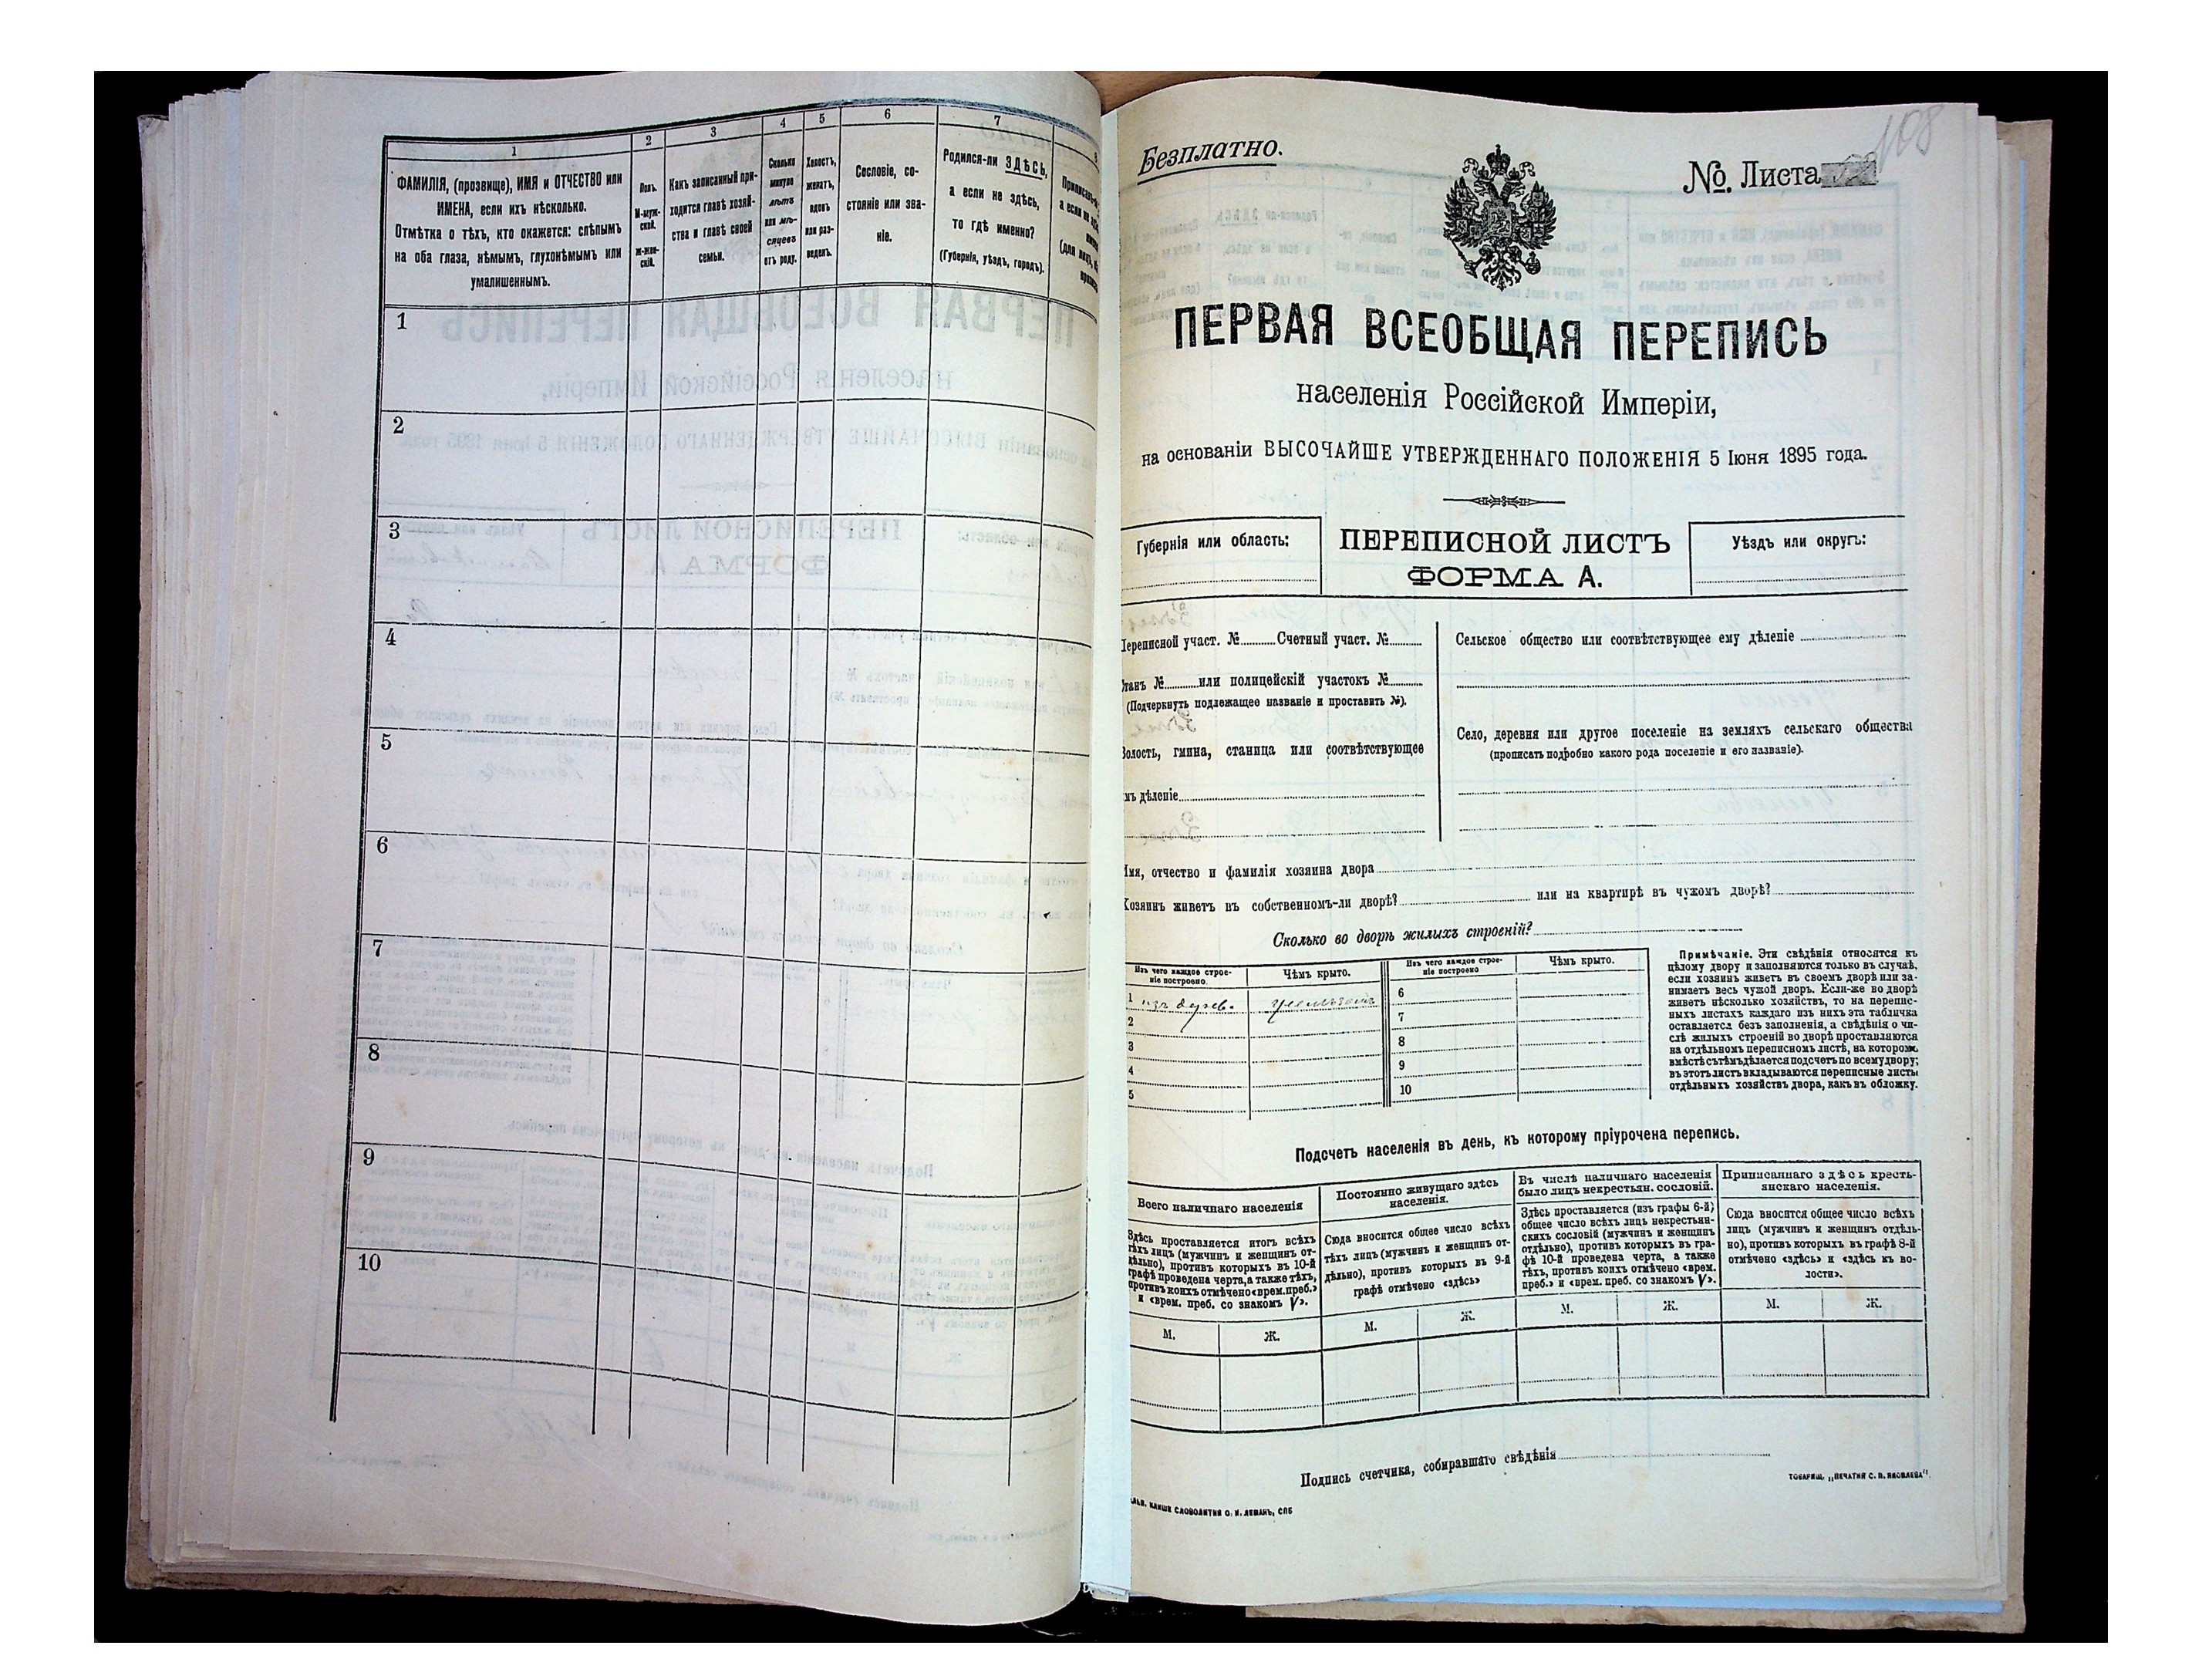 1
2
3
4
5
6
7
8
ФАМИЛІЯ, (прозвище), ИМЯ и ОТЧЕСТВО или
ИМЕНА, если ихъ нѣсколько.
Отмѣтка о тѣхъ, кто окажется: слѣпымъ
на оба глаза, нѣмымъ, глухонѣмымъ или
умалишеннымъ.
Полъ.
М-муж-
ской.
Ж-жен-
скій.
Какъ записанный при-
ходится главѣ хозяй-
ства и главѣ своей
семьи.
Сколько
минуло
лѣтъ
или мѣ-
сяцевъ
отъ роду.
Холостъ,
женатъ,
вдовъ
или раз-
веденъ.
Сословіе, со-
стояніе или зва-
ніе.
Родился-ли ЗДѢСЬ,
а если не здѣсь,
то гдѣ именно?
(Губернія, уѣздъ, городъ).
1
2
3
4
5
6
7
8
9
10
108
Безплатно.
№ Листа
ПЕРВАЯ ВСЕОБЩАЯ ПЕРЕПИСЬ
населенія Россійской Имперіи,
на основаніи ВЫСОЧАЙШЕ УТВЕРЖДЕННАГО ПОЛОЖЕНІЯ 5 Іюня 1895 года.
Губернія или область:
ПЕРЕПИСНОЙ ЛИСТЪ
ФОРМА А.
Уѣздъ или округъ:
Переписной участ. № Счетный участ. №
Станъ № или полицейскій участокъ №
(Подчеркнуть подлежащее названіе и проставить №).
Волость, гмина, станица или соотвѣтствующее
имъ дѣленіе
Сельское общество или соотвѣтствующее ему дѣленіе
Село, деревня или другое поселеніе на земляхъ сельскаго общества
(прописать подробно какого рода поселеніе и его названіе).
Имя, отчество и фамилія хозяина двора
Хозяинъ живетъ въ собственномъ-ли дворѣ? или на квартирѣ въ чужомъ дворѣ?
Сколько во дворѣ жилыхъ строеній?
Изъ чего каждое строе-
ніе построено.
Чѣмъ крыто.
Изъ чего каждое строе-
ніе построено
Чѣмъ крыто.
1 изъ дерев.
2
3
4
5
6
7
8
9
10
Примѣчаніе. Эти свѣдѣнія относятся къ
цѣлому двору и заполняются только въ случаѣ,
если хозяинъ живетъ въ своемъ дворѣ или за-
нимаетъ весь чужой дворъ. Если-же во дворѣ
живетъ нѣсколько хозяйствъ, то на перепис-
ныхъ листахъ каждаго изъ нихъ эта табличка
оставляется безъ заполненія, а свѣдѣнія о чи-
слѣ жилыхъ строеній во дворѣ проставляются
на отдѣльномъ переписномъ листѣ, на которомъ
вмѣстѣ съ тѣмъ дѣлается подсчетъ по всему двору;
въ этотъ листъ вкладываются переписные листы
отдѣльныхъ хозяйствъ двора, какъ въ обложку.
Подсчетъ населенія въ день, къ которому пріурочена перепись.
Всего наличнаго населенія
Здѣсь проставляется итогъ всѣхъ
тѣхъ лицъ (мужчинъ и женщинъ от-
дѣльно), противъ которыхъ въ 10-й
графѣ проведена черта, а также тѣхъ,
противъ коихъ отмѣчено «врем. преб.»
и «врем. преб. со знакомъ V».
Постоянно живущаго здѣсь
населенія.
Сюда вносится общее число всѣхъ
тѣхъ лицъ (мужчинъ и женщинъ от-
дѣльно), противъ которыхъ въ 9-й
графѣ отмѣчено «здѣсь»
Въ числѣ наличнаго населенія
было лицъ некрестьян. сословій.
Здѣсь проставляется (изъ графы 6-й)
общее число всѣхъ лицъ некрестьян-
скихъ сословій (мужчинъ и женщинъ
отдѣльно), противъ которыхъ въ гра-
фѣ 10-й проведена черта, а также
тѣхъ, противъ коихъ отмѣчено «врем.
преб.» и «врем. преб. со знакомъ V».
Приписаннаго здѣсь кресть-
янскаго населенія.
Сюда вносится общее число всѣхъ
лицъ (мужчинъ и женщинъ отдѣль-
но), противъ которыхъ въ графѣ 8-й
отмѣчено «здѣсь» и «здѣсь къ во-
лости».
М. Ж. М. Ж. М. Ж. М. Ж.
Подпись счетчика, собиравшаго свѣдѣнія
КЛИШЕ СЛОВОЛИТНИ О. И. ЛЕМАНЪ, СПБ
ТОВАРИЩ. „ПЕЧАТНИ С. П. ЯКОВЛЕВА“